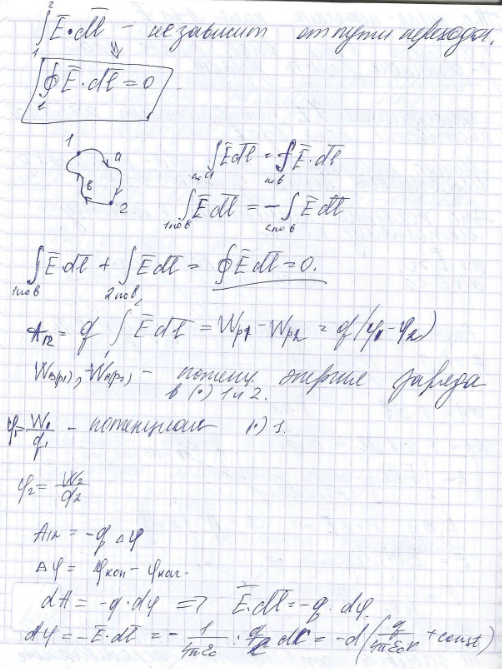 ∫₁² E̅·dl̅ – не зависит от пути перехода.
∮ E̅·dl̅ = 0
1 a
в 2
∫ E̅dl̅ = ∫ E̅·dl̅
∫ 1 по в E̅dl̅ = –∫ 2 по в E̅dl̅
∫ 1 по в E̅·dl̅ + ∫ 2 по в E̅dl̅ = ∮ E̅dl̅ = 0.
A₁₂ = q ∫₁² E̅dl̅ = Wp₁ – Wp₂ = q(φ₁–φ₂)
– потенц. энергия заряда
в (·) 1 и 2.
– потенциал (·) 1.
φ₂ = W₂/q₂
A₁₂ = –q Δφ
Δφ = φкон – φнач.
dA = –q·dφ ⇒ E̅·dl̅ = –q·dφ.
dφ = –E̅·dl̅ = – 1/4πε₀ · q/r dr = –d(q/4πε₀r + const)